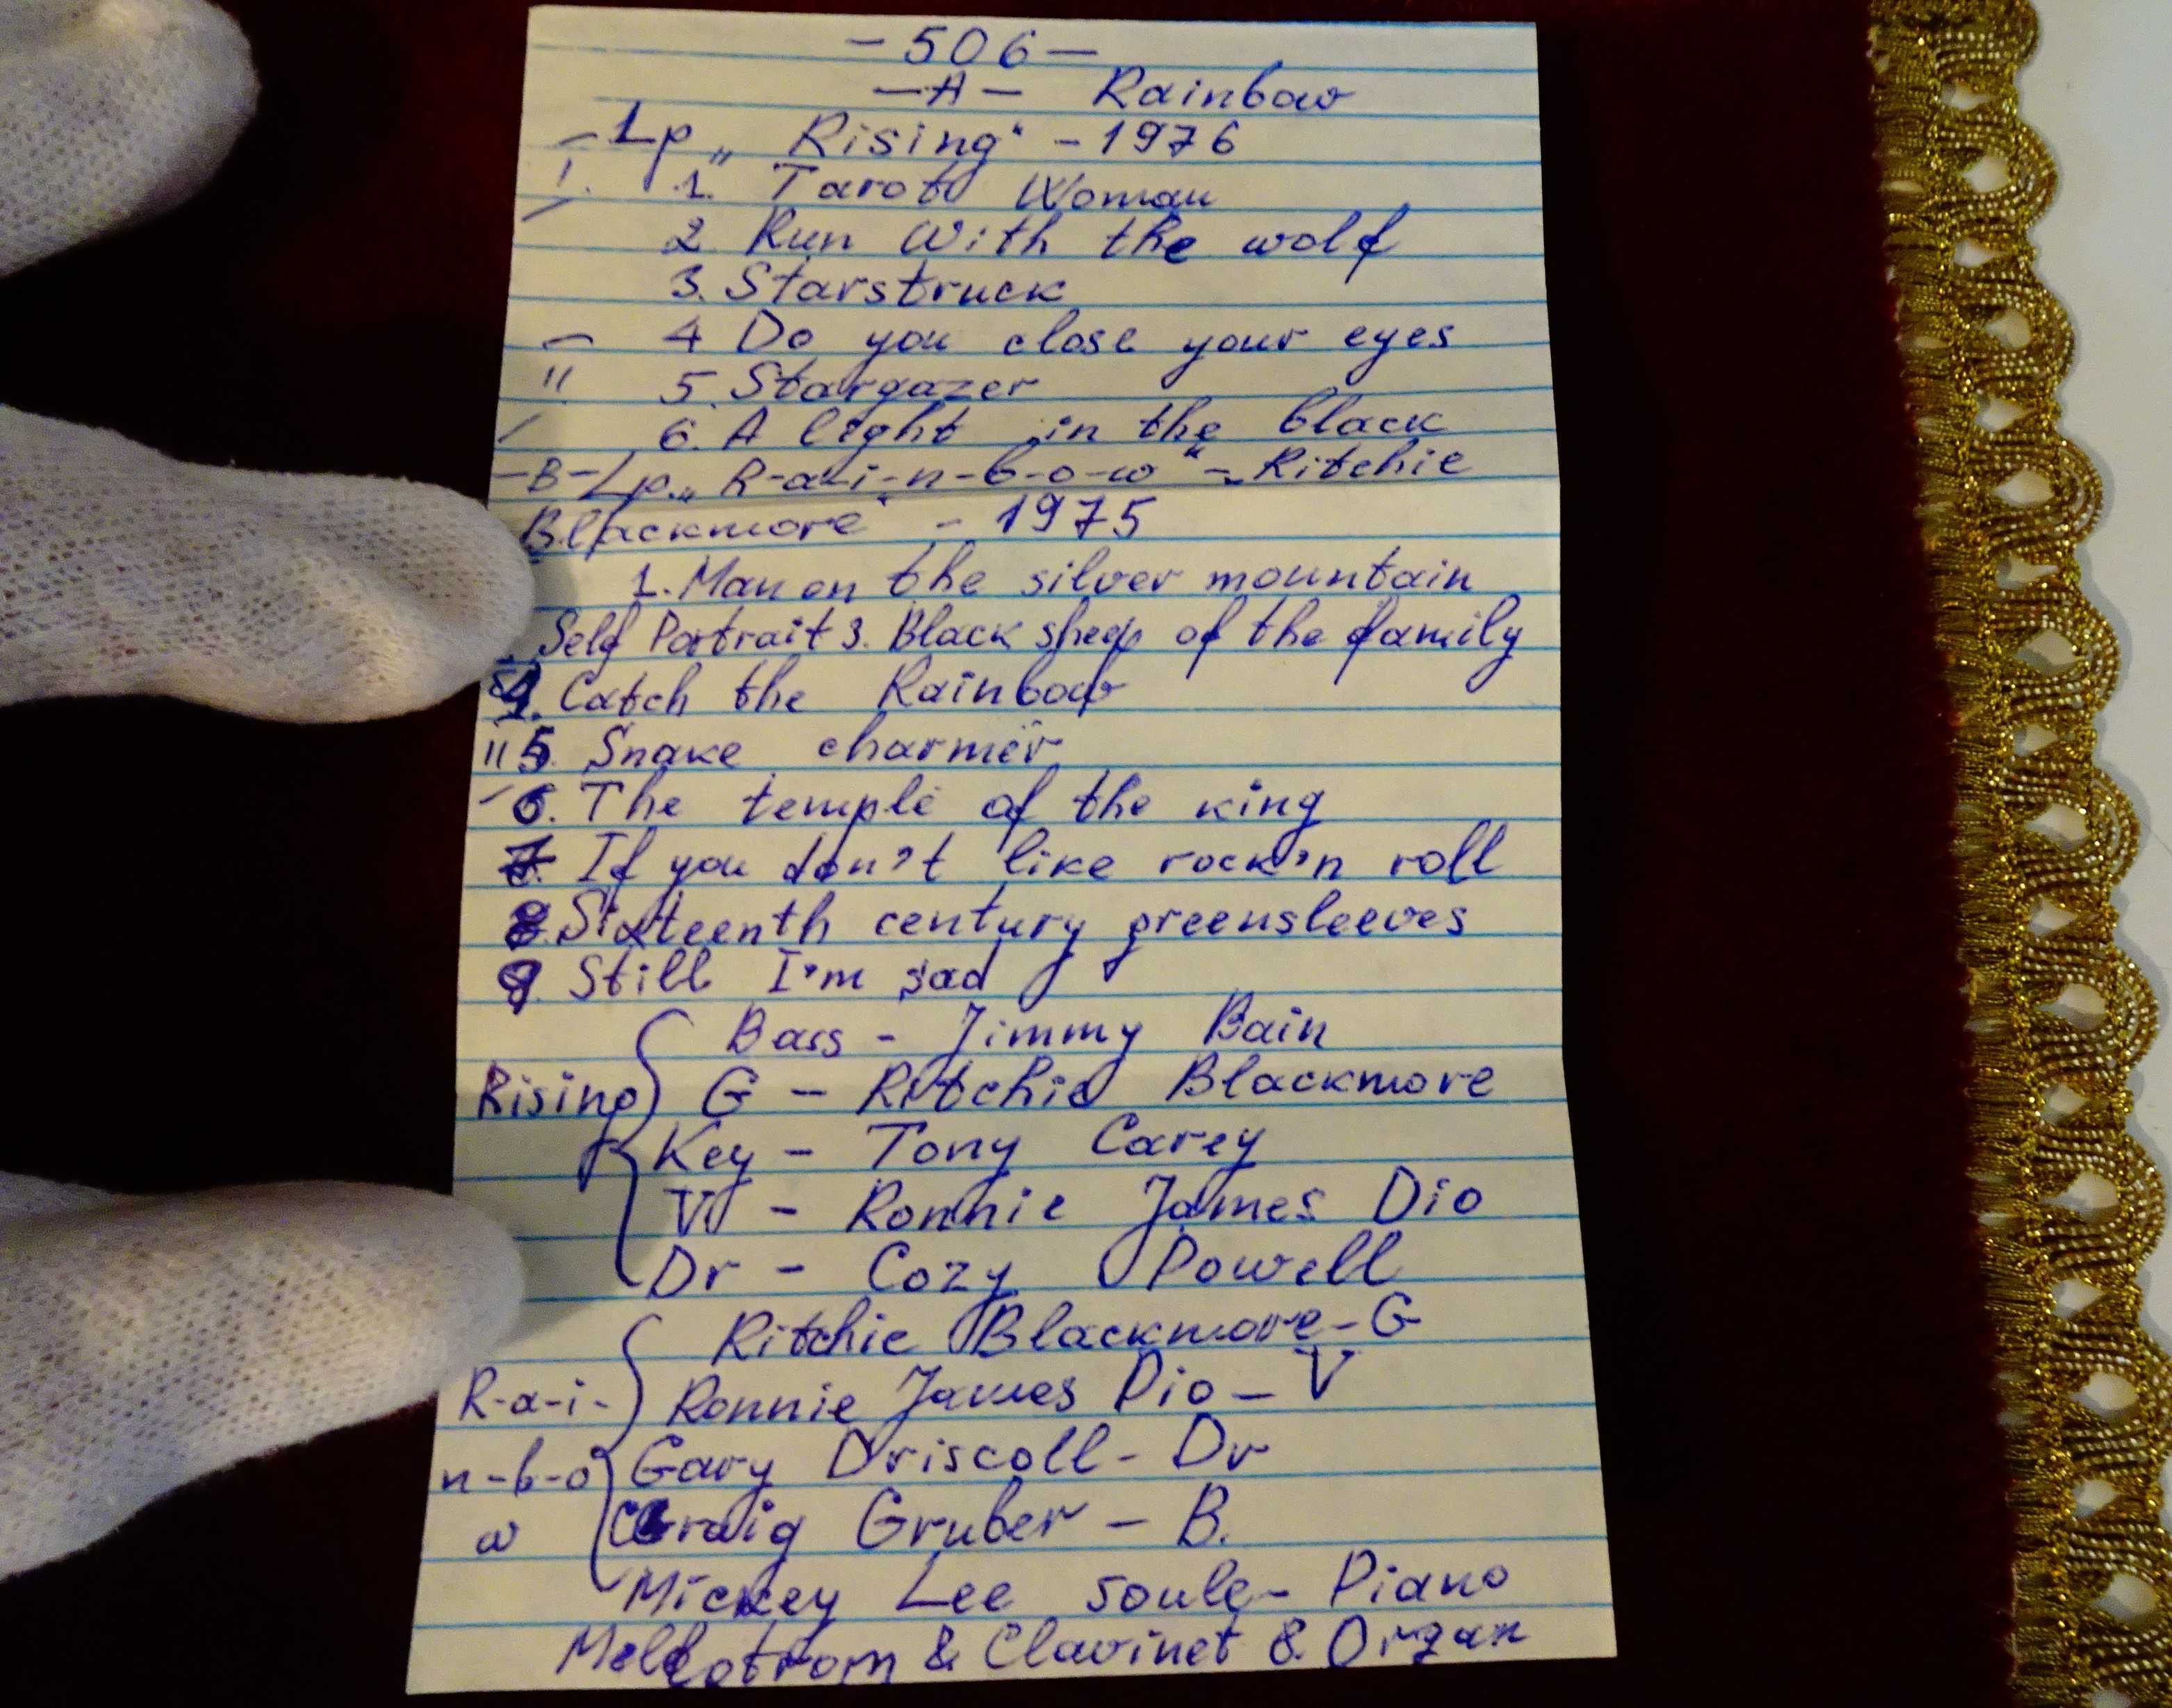 - 506 -
- A - Rainbow
- Lp „Rising“ - 1976
1. Tarot Woman
2 Run With the wolf
3. Starstruck
4 Do you close your eyes
5. Stargazer
6. A light in the black
- B - Lp „R-a-i-n-b-o-w“ - Ritchie
Blackmore“ - 1975
1. Man on the silver mountain
Self Portrait 3. Black sheep of the family
4. Catch the Rainbow
5. Snake charmer
6. The temple of the king
7. If you don't like rock'n roll
8. Sixteenth century greensleeves
9. Still I'm sad
Bass - Jimmy Bain
Rising G - Ritchie Blackmore
Key - Tony Carey
V - Ronnie James Dio
Dr - Cozy Powell
Ritchie Blackmore - G
R-a-i- Ronnie James Dio - V
n-b-o Gary Driscoll - Dr
w Craig Gruber - B.
Mickey Lee Soule - Piano
Mellotrom & Clavinet & Organ